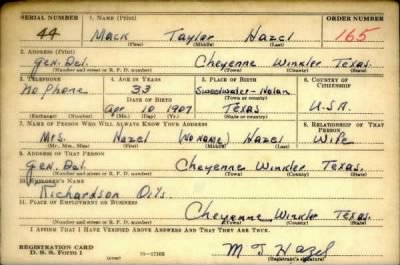 SERIAL NUMBER 1. NAME (Print) ORDER NUMBER
44 Mack Taylor Hazel 165
(First) (Middle) (Last)
2. ADDRESS (Print)
Gen. Del. Cheyenne Winkler Texas.
(Number and street or R. F. D. number) (Town) (County) (State)
3. TELEPHONE 4. AGE IN YEARS 5. PLACE OF BIRTH 6. COUNTRY OF CITIZENSHIP
No Phone 33 Sweetwater-Nolan
DATE OF BIRTH (Town) (County)
Apr 10 1907 Texas U.S.A.
(Exchange) (Number) (Mo.) (Day) (Yr.) (State or country)
7. NAME OF PERSON WHO WILL ALWAYS KNOW YOUR ADDRESS 8. RELATIONSHIP OF THAT PERSON
Mrs. Hazel (No Name) Hazel Wife
(Mr., Mrs., Miss) (First) (Middle) (Last)
9. ADDRESS OF THAT PERSON
Gen. Del Cheyenne Winkler Texas.
(Number and street or R. F. D. number) (Town) (County) (State)
10. EMPLOYER'S NAME
Richardson Oils.
11. PLACE OF EMPLOYMENT OR BUSINESS
Cheyenne Winkler Texas
(Number and street or R. F. D. number) (Town) (County) (State)
I AFFIRM THAT I HAVE VERIFIED ABOVE ANSWERS AND THAT THEY ARE TRUE.
REGISTRATION CARD
D. S. S. Form 1 (over) M T Hazel
(Registrant's signature)